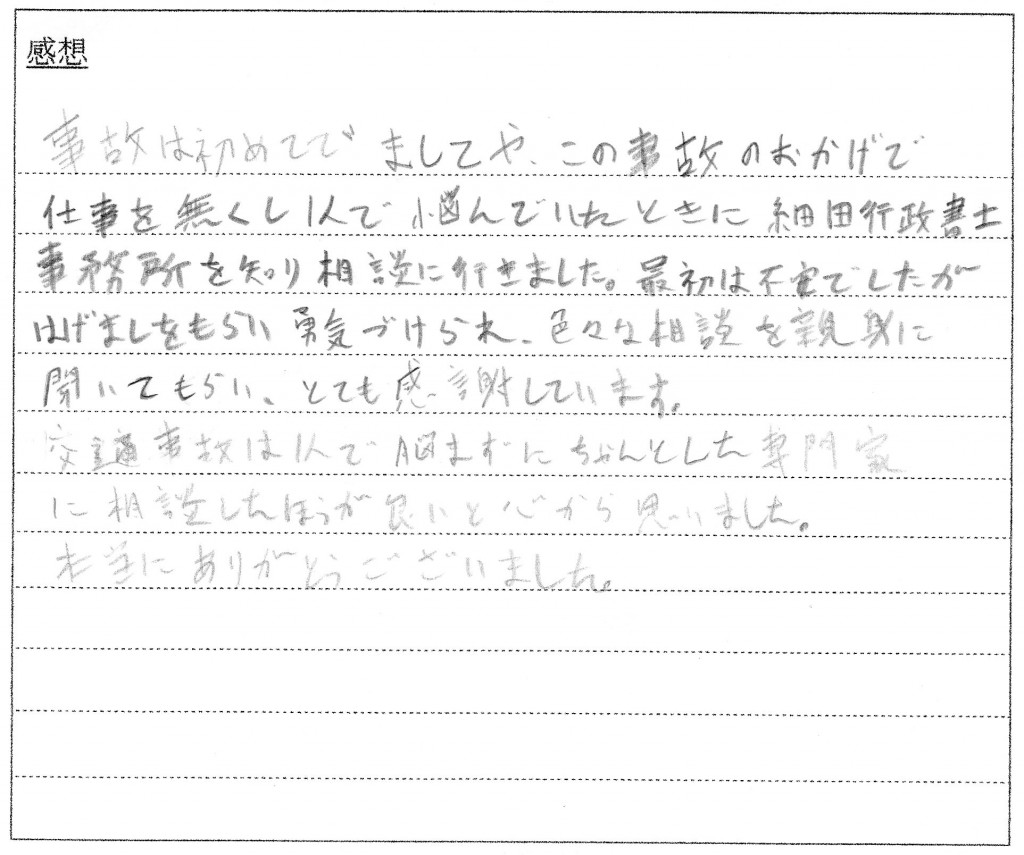 感想
事故は初めてで ましてや、この事故のおかげで
仕事を無くし1人で悩んでいたときに細田行政書士
事務所を知り相談に行きました。最初は不安でしたが
はげましをもらい勇気づけられ、色々な相談を親身に
聞いてもらい、とても感謝しています。
交通事故は1人で悩まずにちゃんとした専門家
に相談したほうが良いと心から思いました。
本当にありがとうございました。